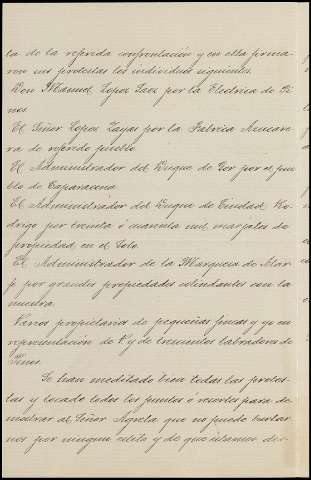 ta de la referida confrontación y en ella firma-
ron sus protestas los individuos siguientes.
Don Manuel Lopez Saez por la Electrica de Pi-
nos
El Señor Lopez Zayas por la Fabrica Azucare-
ra de referido pueblo
El Administrador del Duque de Gor por el pue
blo de Caparacena
El Administrador del Duque de Ciudad Ro-
drigo por treinta ó cuarenta mil marjales de
propiedad, en el Soto.
El Administrador de la Marquesa de
por grandes propiedades colindantes con la
nuestra.
Varios propietarios de pequeñas fincas y yo en
representación de V. y de trescientos labradores de
Pinos.
Se han meditado bien todas las protes-
tas y tocado todos los puntos ó resortes para de-
mostrar al Señor Agrela que no puede burlar-
nos por ningun estilo y de que estamos dis-